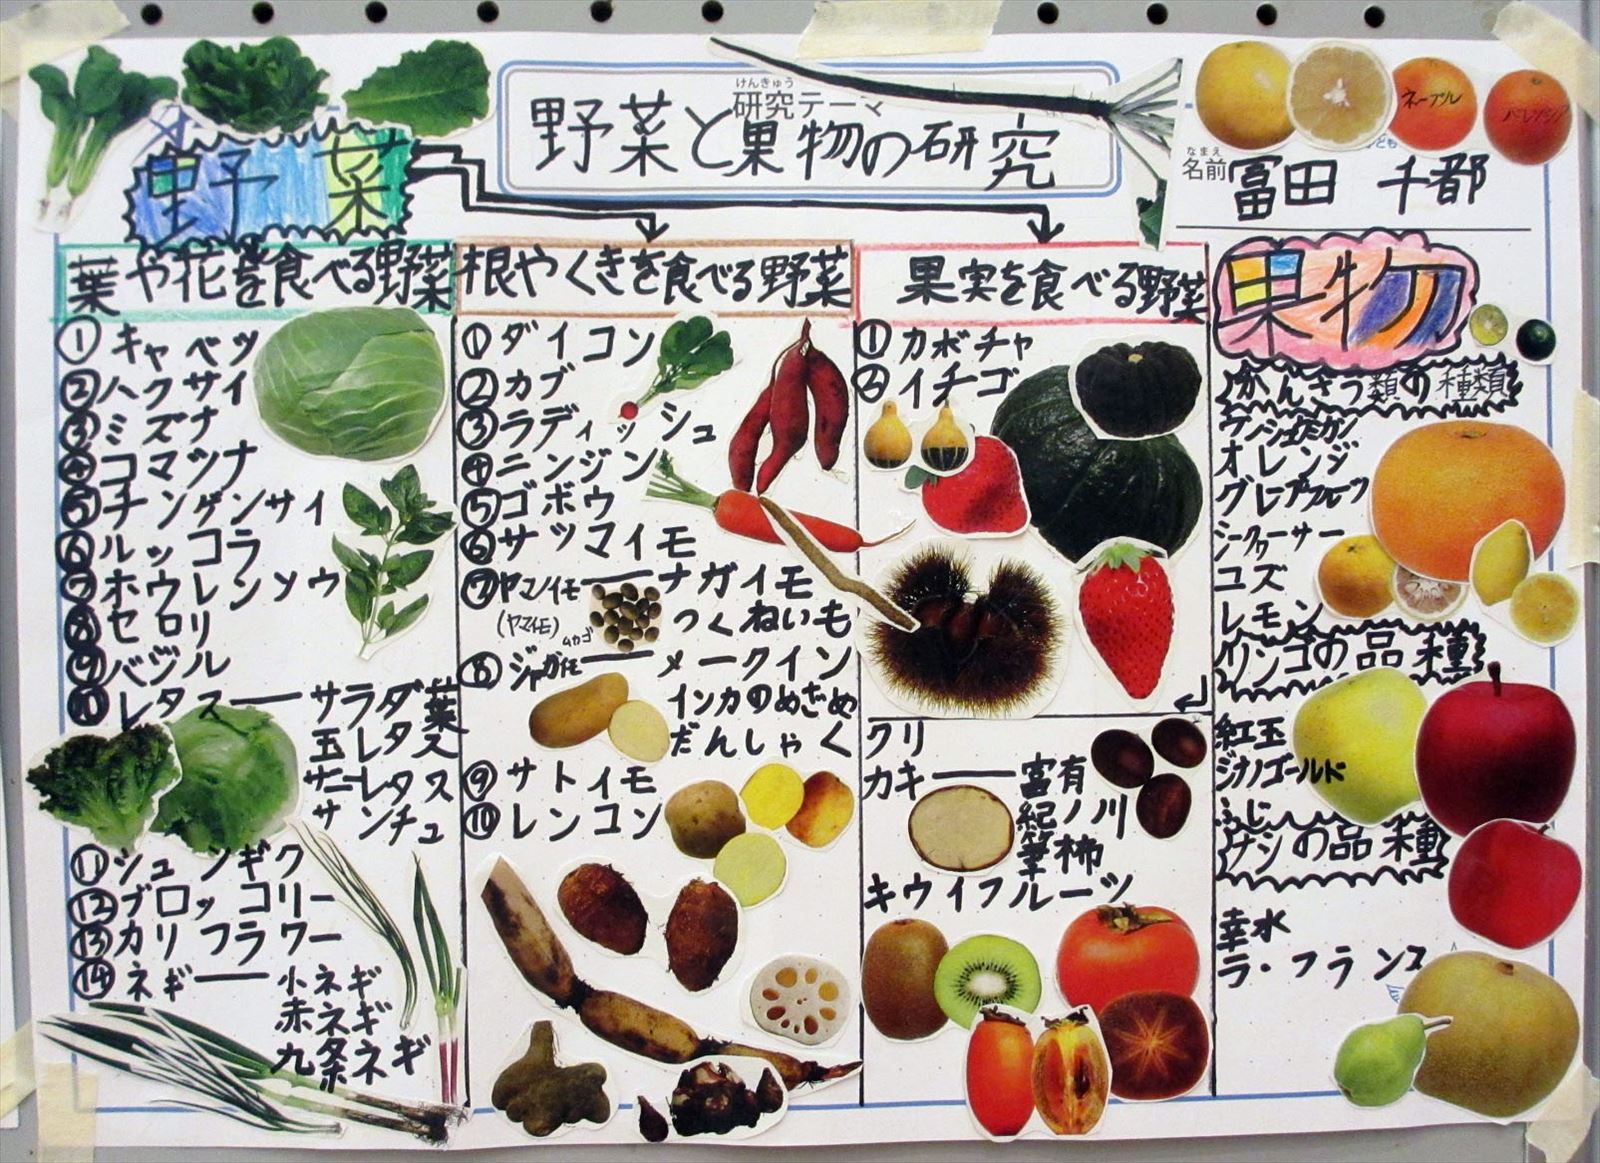 けんきゅう
研究テーマ
野菜と果物の研究
ネーブル
バレンシア
なまえ
名前
冨田 千都
野菜
葉や花を食べる野菜
①キャベツ
②ハクサイ
③ミズナ
④コマツナ
⑤チンゲンサイ
⑥ルッコラ
⑦ホウレンソウ
⑧セロリ
⑨バジル
⑩レタス――サラダ菜
玉レタス
サニーレタス
サンチュ
⑪シュンギク
⑫ブロッコリー
⑬カリフラワー
⑭ネギ――小ネギ
赤ネギ
九条ネギ
根やくきを食べる野菜
①ダイコン
②カブ
③ラディッシュ
④ニンジン
⑤ゴボウ
⑥サツマイモ
⑦ヤマノイモ――ナガイモ
(ヤマイモ)
ムカゴ
つくねいも
⑧ジャガイモ――メークイン
インカのめざめ
だんしゃく
⑨サトイモ
⑩レンコン
果実を食べる野菜
①カボチャ
②イチゴ
クリ
カキ――富有
紀ノ川
筆柿
キウイフルーツ
果物
かんきつ類の種類
ウンシュウミカン
オレンジ
グレープフルーツ
シークヮーサー
ユズ
レモン
リンゴの品種
紅玉
シナノゴールド
ふじ
ナシの品種
幸水
ラ・フランス